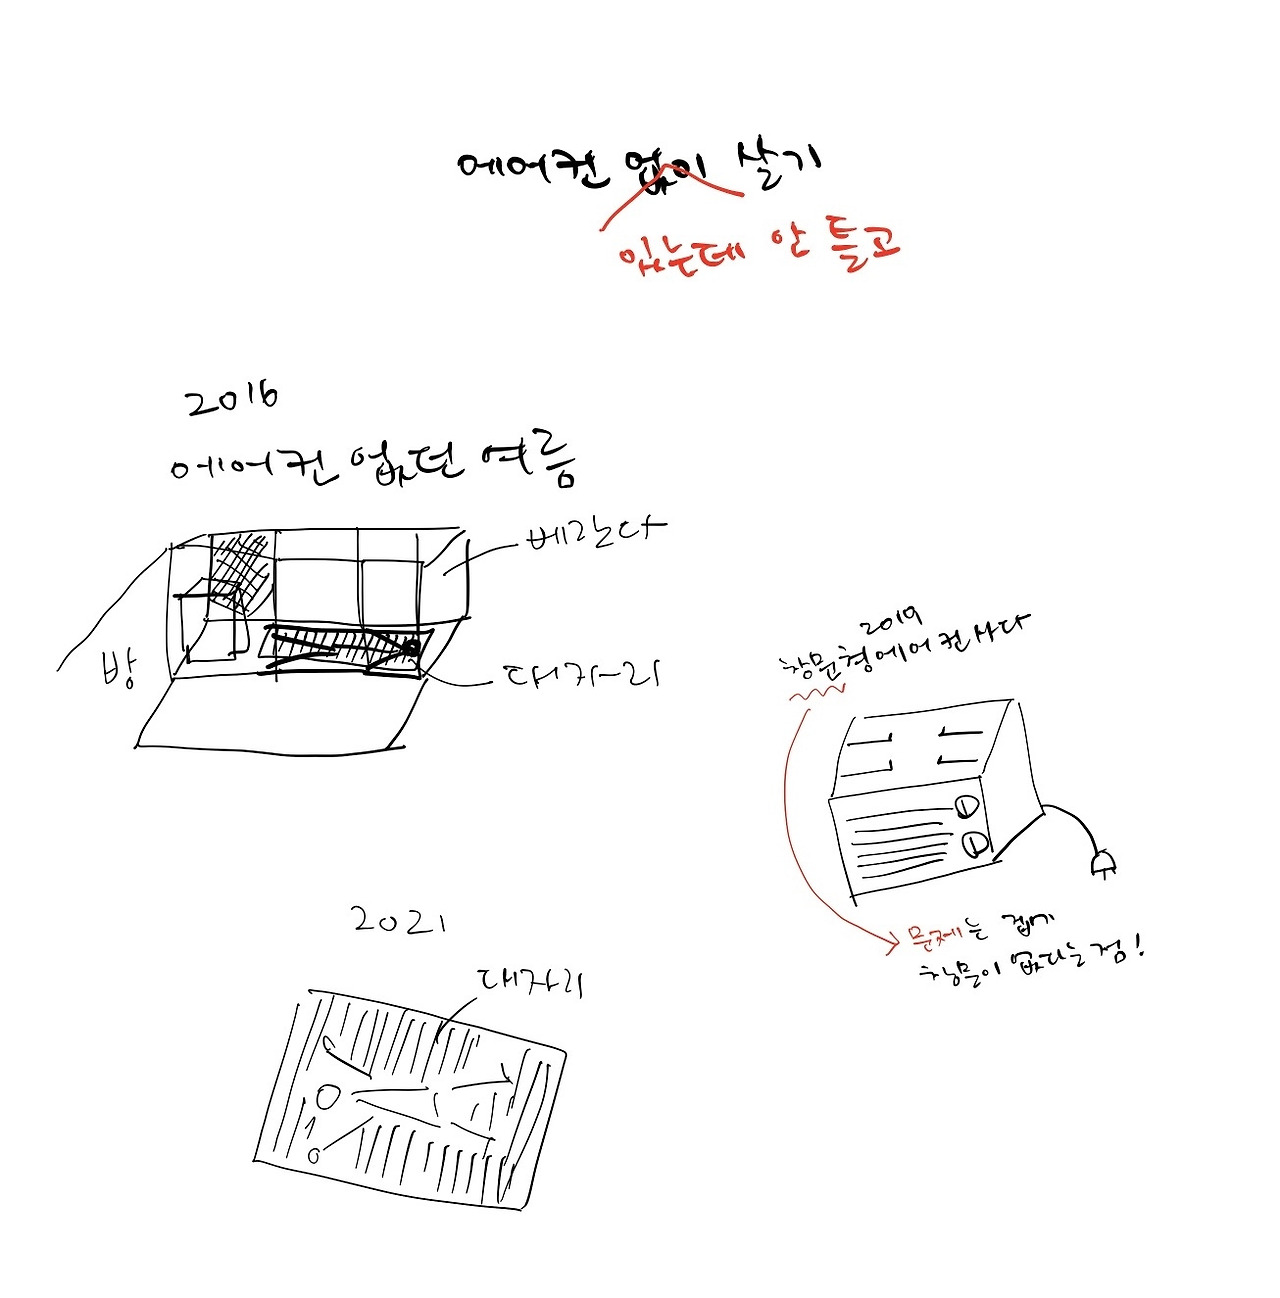 에어컨 없이 살기
있는데 안 틀고
2016
에어컨 없던 여름
베란다
방
대자리
2019
창문형에어컨사다
문제는 겁게
창문이 없다는 점!
2021
대자리